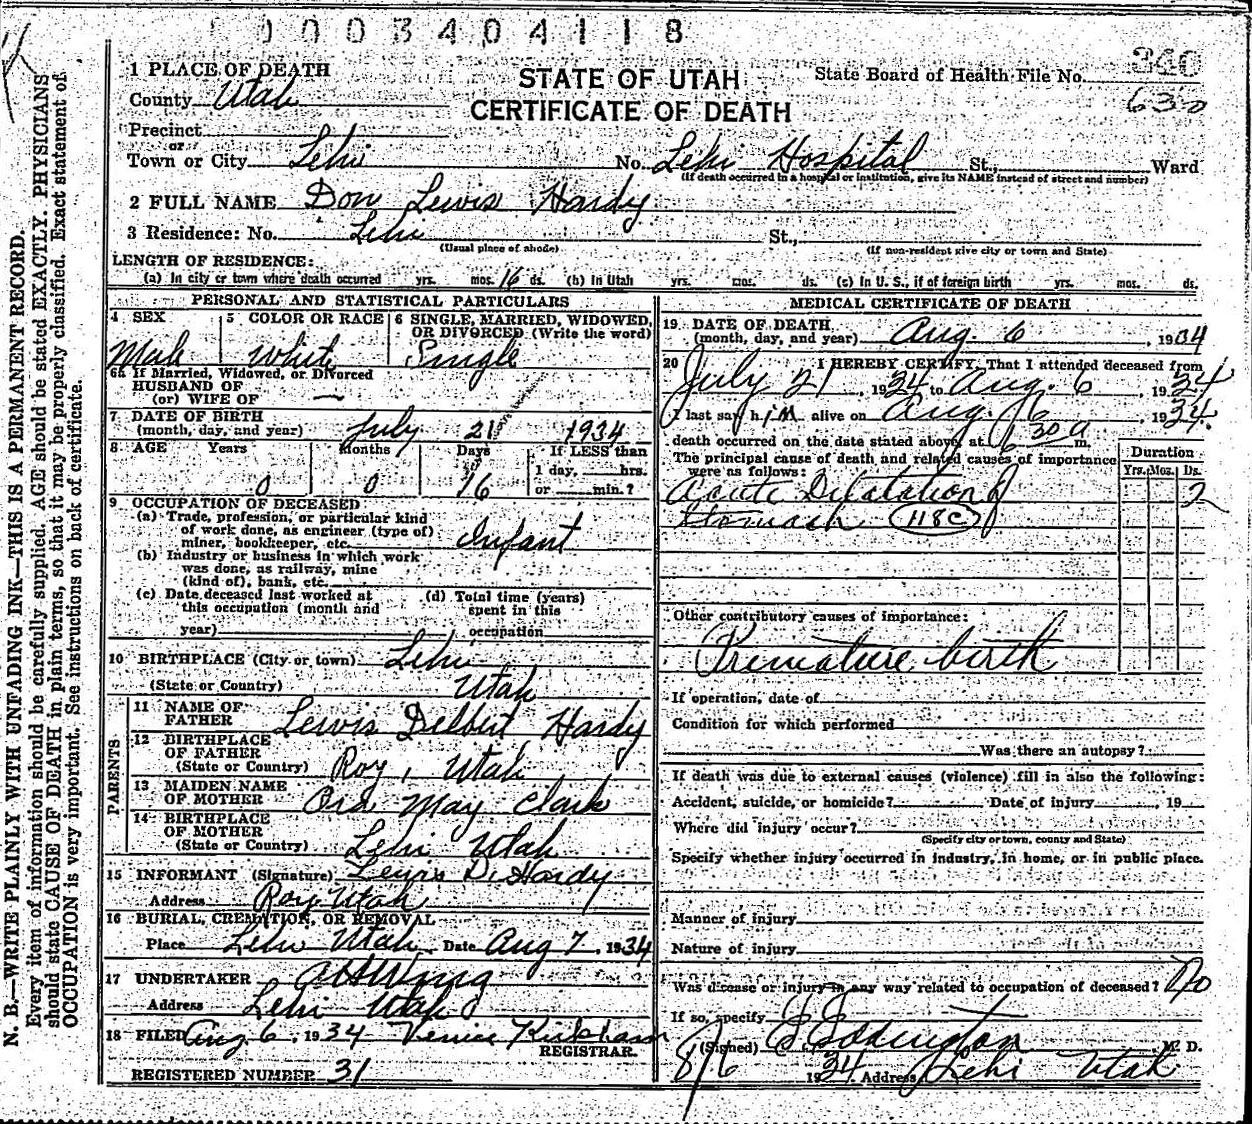 0003404118
STATE OF UTAH
CERTIFICATE OF DEATH
State Board of Health File No. 340
630
1 PLACE OF DEATH
County Utah
Precinct
or
Town or City Lehi No. Lehi Hospital St., Ward
(If death occurred in a hospital or institution, give its NAME instead of street and number)
2 FULL NAME Don Lewis Hardy
3 Residence: No. Lehi St.,
(Usual place of abode) (If non-resident give city or town and State)
LENGTH OF RESIDENCE:
(a) In city or town where death occurred yrs. mos. 16 ds. (b) In Utah yrs. mos. ds. (c) In U. S., if of foreign birth yrs. mos. ds.
PERSONAL AND STATISTICAL PARTICULARS
4 SEX 5 COLOR OR RACE 6 SINGLE, MARRIED, WIDOWED,
OR DIVORCED (Write the word)
Male White Single
6a If Married, Widowed, or Divorced
HUSBAND OF
(or) WIFE OF —
7 DATE OF BIRTH
(month, day, and year) July 21 1934
8 AGE Years Months Days If LESS than
1 day, hrs.
or min.?
0 0 16
9 OCCUPATION OF DECEASED
(a) Trade, profession, or particular kind
of work done, as engineer (type of)
miner, bookkeeper, etc. Infant
(b) Industry or business in which work
was done, as railway, mine
(kind of), bank, etc.
(c) Date deceased last worked at
this occupation (month and
year)
(d) Total time (years)
spent in this
occupation
10 BIRTHPLACE (City or town) Lehi
(State or Country) Utah
PARENTS
11 NAME OF
FATHER Lewis Delbert Hardy
12 BIRTHPLACE
OF FATHER
(State or Country) Roy, Utah
13 MAIDEN NAME
OF MOTHER Ora May Clark
14 BIRTHPLACE
OF MOTHER
(State or Country) Lehi Utah
15 INFORMANT (Signature) Lewis D. Hardy
Address Roy Utah
16 BURIAL, CREMATION, OR REMOVAL
Place Lehi Utah Date Aug 7, 1934
17 UNDERTAKER
Address Lehi Utah
18 FILED Aug. 6, 1934 Venice Kirkham
REGISTRAR.
REGISTERED NUMBER 31
MEDICAL CERTIFICATE OF DEATH
19 DATE OF DEATH
(month, day, and year) Aug. 6 1934
20 I HEREBY CERTIFY, That I attended deceased from
July 21, 1934 to Aug. 6, 1934
I last saw him alive on Aug. 6, 1934.
death occurred on the date stated above, at 6 30 a m.
The principal cause of death and related causes of importance
were as follows:
Duration
Yrs. Mos. Ds.
Acute Dilatation of 2
Stomach 118c
Other contributory causes of importance:
Premature birth
If operation, date of
Condition for which performed
Was there an autopsy?
If death was due to external causes (violence) fill in also the following:
Accident, suicide, or homicide? Date of injury , 19
Where did injury occur?
(Specify city or town, county and State)
Specify whether injury occurred in industry, in home, or in public place.
Manner of injury
Nature of injury
Was disease or injury in any way related to occupation of deceased? No
If so, specify
(Signed) Eddington M. D.
8/6 1934. Address Lehi Utah
N. B.—WRITE PLAINLY WITH UNFADING INK—THIS IS A PERMANENT RECORD.
Every item of information should be carefully supplied. AGE should be stated EXACTLY. PHYSICIANS
should state CAUSE OF DEATH in plain terms, so that it may be properly classified. Exact statement of
OCCUPATION is very important. See instructions on back of certificate.